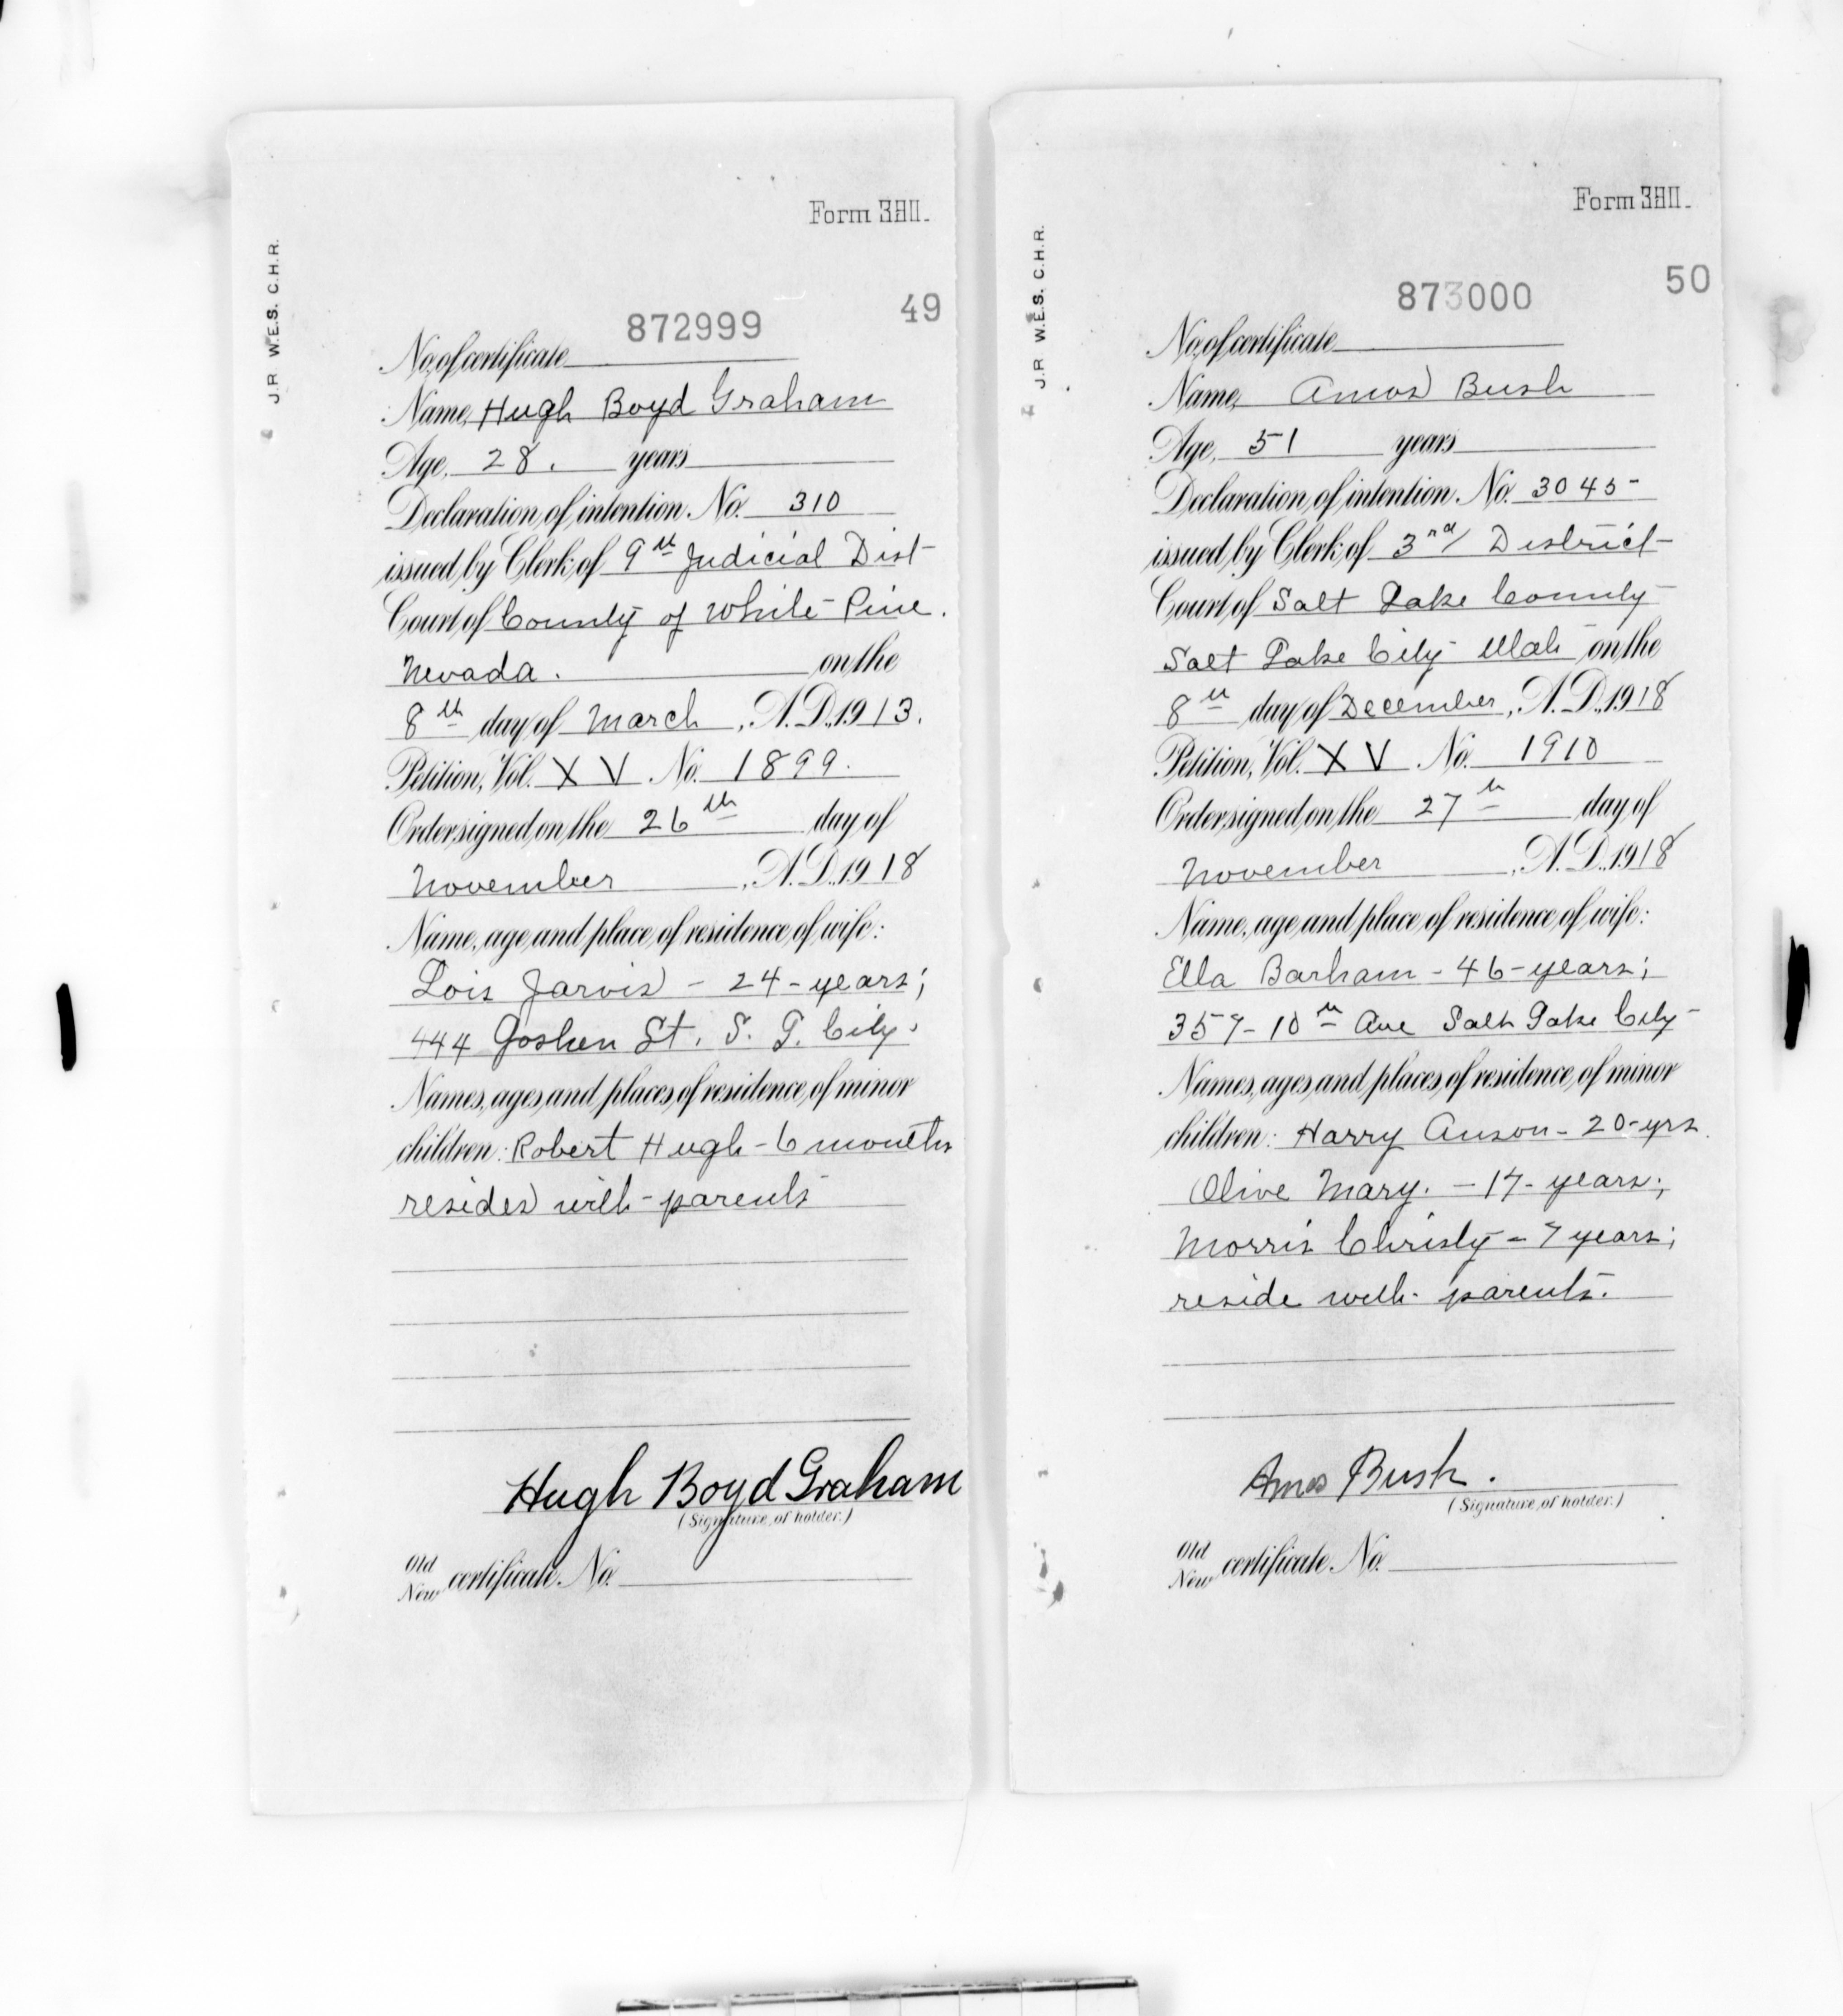 Form 380.
J.R W.E.S. C.H.R.
49
872999
No. of certificate
Name, Hugh Boyd Graham
Age, 28. years
Declaration of intention No. 310
issued by Clerk of 9th Judicial Dist
Court of County of White Pine.
Nevada. on the
8th day of March, A.D. 1913.
Petition, Vol. XV No. 1899.
Order signed on the 26th day of
November, A.D. 1918
Name, age and place of residence of wife:
Lois Jarvis - 24 - years;
444 Goshen St. S. L. City.
Names, ages and places of residence of minor
children: Robert Hugh - 6 months
resides with parents
Hugh Boyd Graham
(Signature of holder.)
Old
New certificate No.
Form 380.
J.R W.E.S. C.H.R.
50
873000
No. of certificate
Name, Amos Bush
Age, 51 years
Declaration of intention No. 3045
issued by Clerk of 3rd District
Court of Salt Lake County
Salt Lake City Utah on the
8th day of December, A.D. 1918
Petition, Vol. XV No. 1910
Order signed on the 27th day of
November, A.D. 1918
Name, age and place of residence of wife:
Ella Barham - 46 - years;
357 - 10th Ave Salt Lake City
Names, ages and places of residence of minor
children: Harry Anson - 20 - yrs.
Olive Mary. - 17 - years;
Morris Christy - 7 years;
reside with parents.
Amos Bush.
(Signature of holder.)
Old
New certificate No.